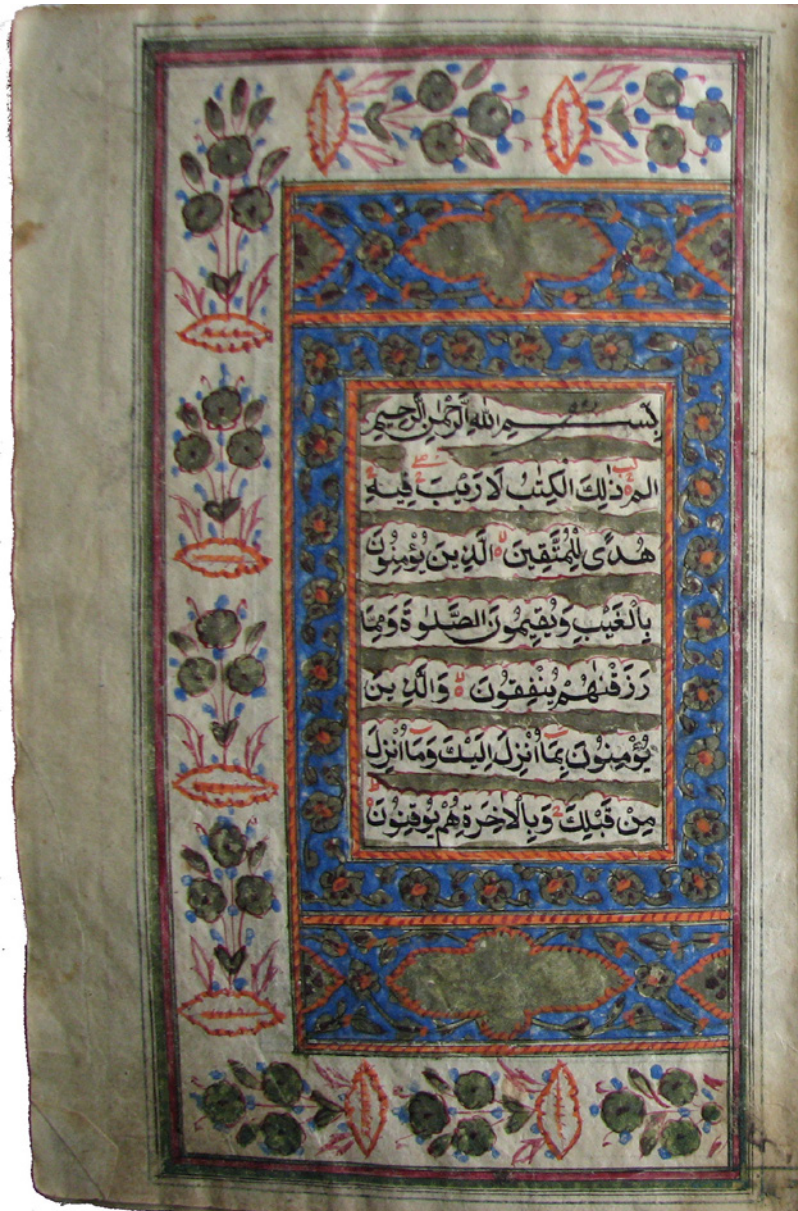 بِسْمِ اللهِ الرَّحْمٰنِ الرَّحِيْمِ
الم ذٰلِكَ الْكِتٰبُ لَا رَيْبَ فِيْهِ
هُدًى لِلْمُتَّقِيْنَ الَّذِيْنَ يُؤْمِنُوْنَ
بِالْغَيْبِ وَيُقِيْمُوْنَ الصَّلٰوةَ وَمِمَّا
رَزَقْنٰهُمْ يُنْفِقُوْنَ وَالَّذِيْنَ
يُؤْمِنُوْنَ بِمَا اُنْزِلَ اِلَيْكَ وَمَا اُنْزِلَ
مِنْ قَبْلِكَ وَبِالْاٰخِرَةِ هُمْ يُوْقِنُوْنَ